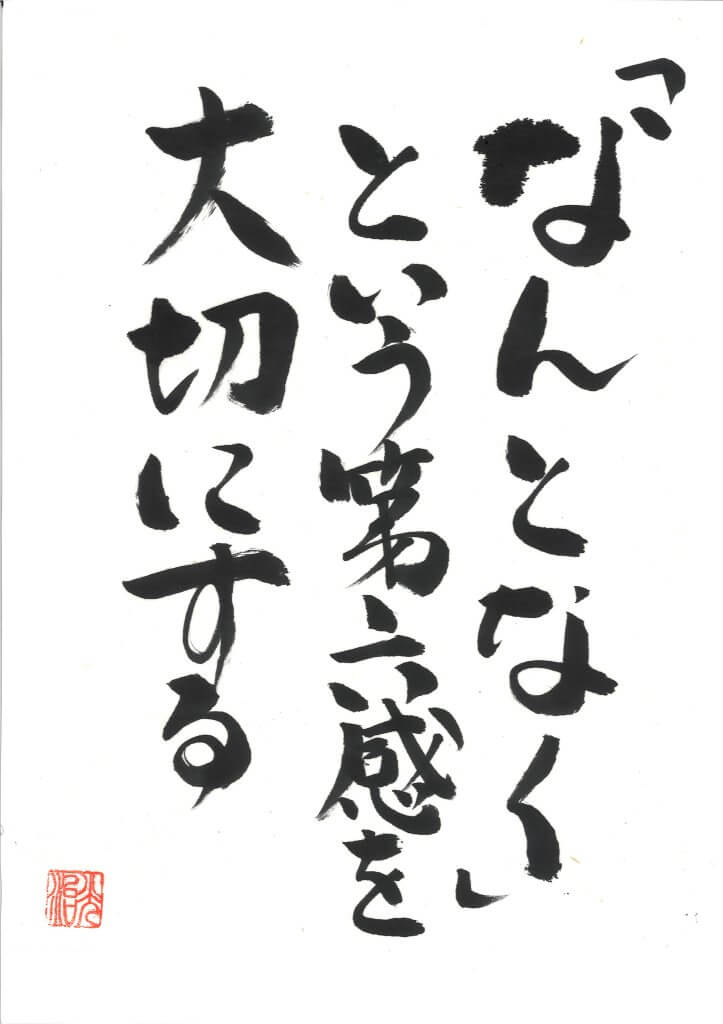 「なんとなく」
という第六感を
大切にする